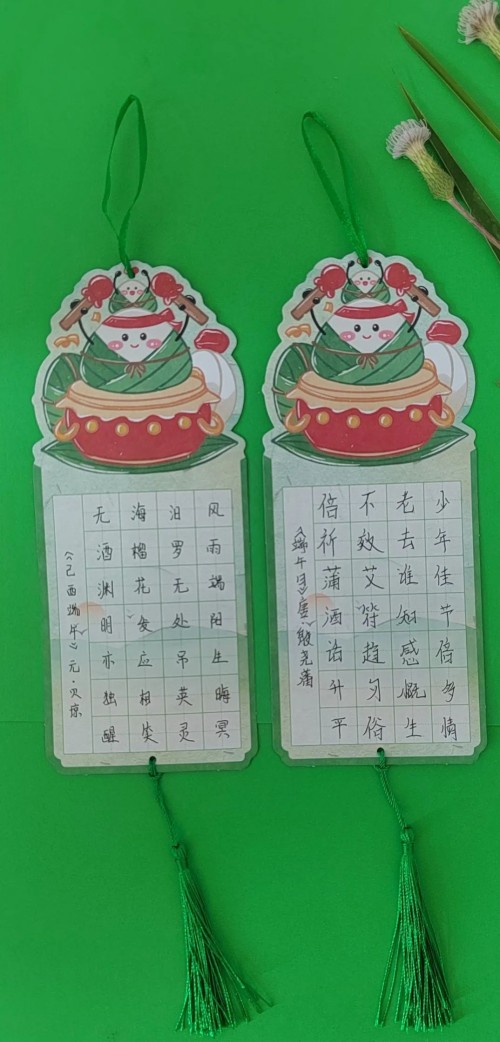 风雨端阳生晦冥
汨罗无处吊英灵
海榴花发应相笑
无酒渊明亦独醒
《己酉端午》元·贝琼
少年佳节倍多情
老去谁知感慨生
不效艾符趋习俗
倍祈蒲酒话升平
《端午日》唐·殷尧藩